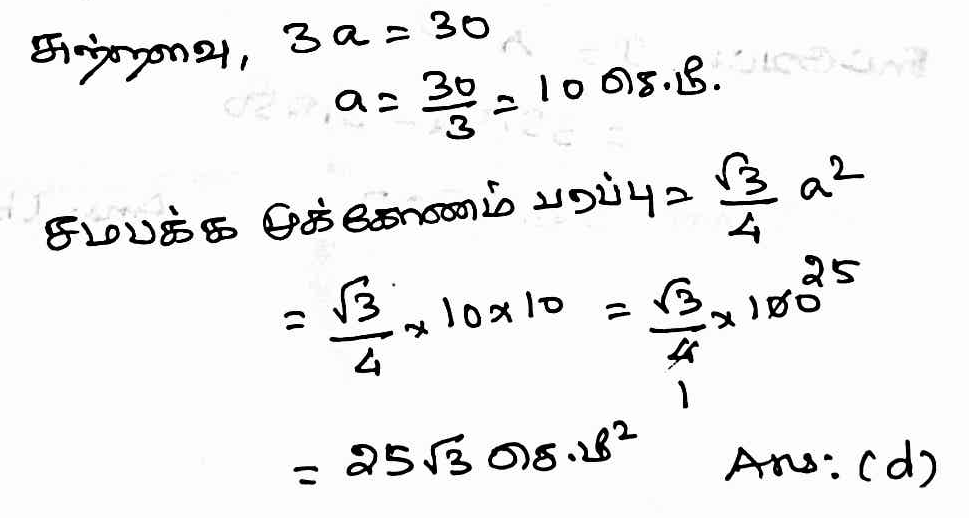 சுற்றளவு, 3a = 30
a = 30/3 = 10 செ.மீ.
சமபக்க முக்கோணம் பரப்பு = √3/4 a²
= √3/4 × 10 × 10 = √3/4 × 100 25
1
= 25√3 செ.மீ² Ans: (d)